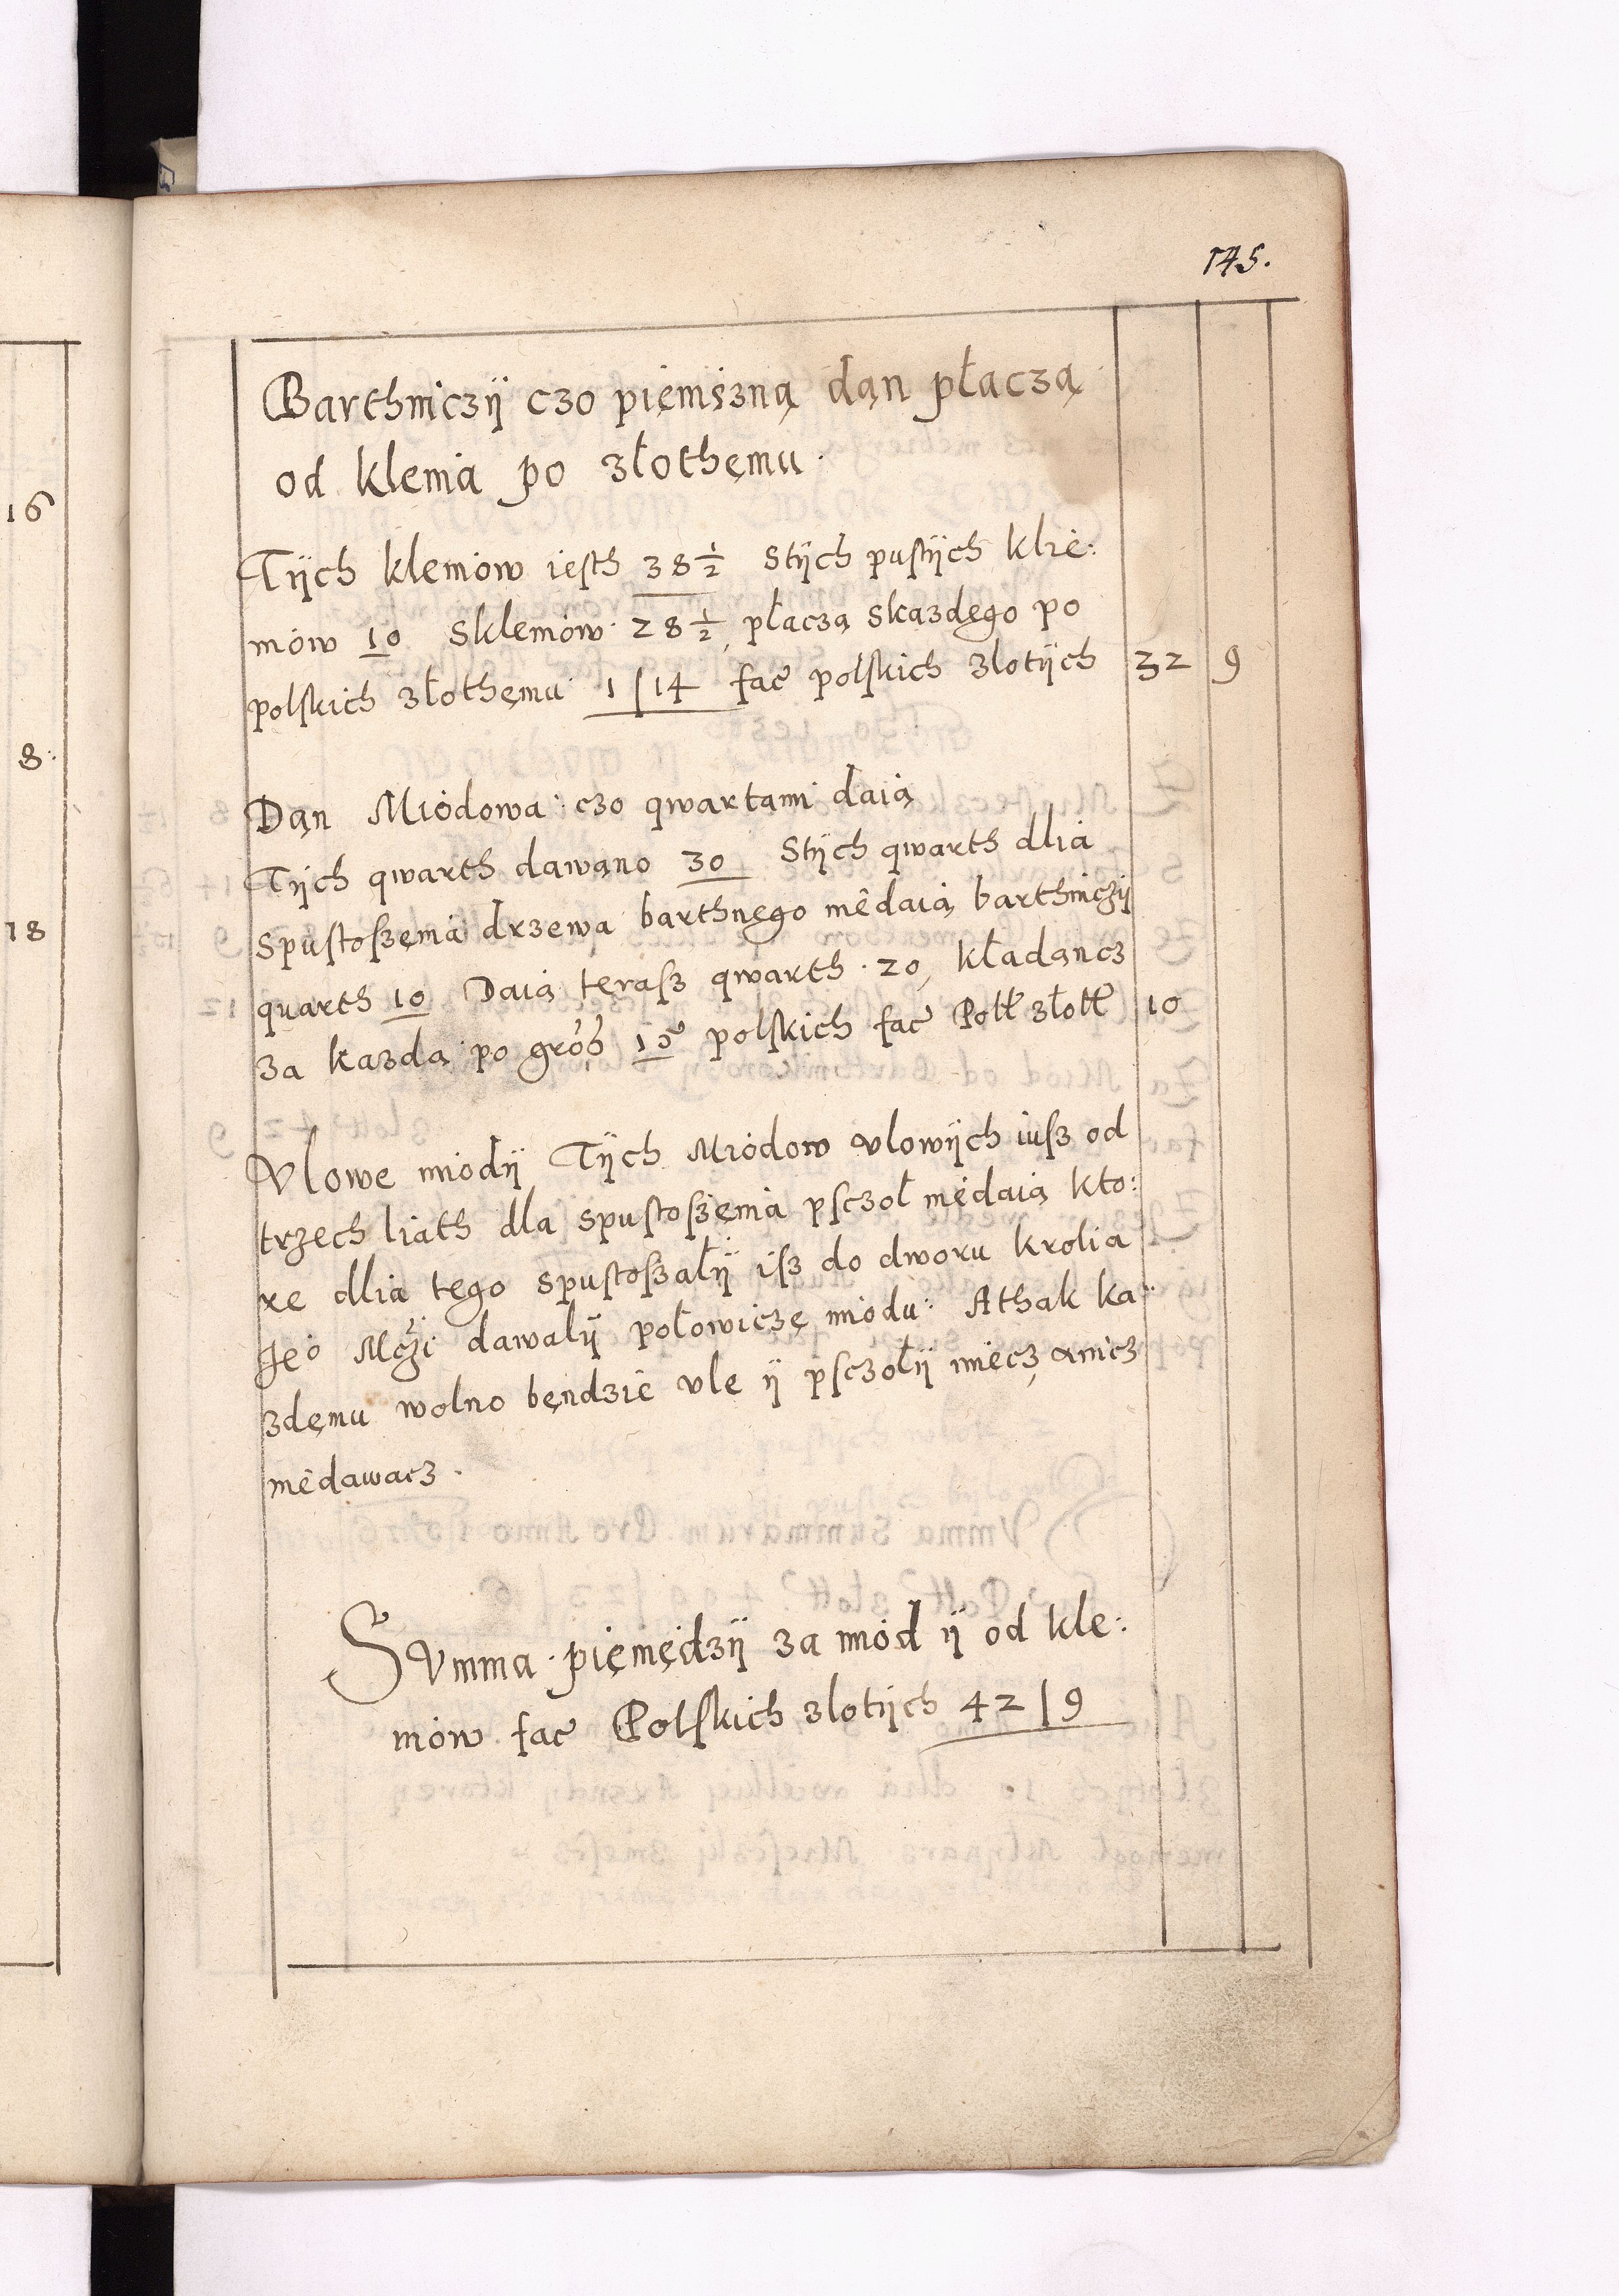 145.
Barthniczÿ czo pięniszną dąn płaczą
od kleniа po złothęmu.
Tÿch kleniow iesth 38½ Stÿch pustÿch klie:
niow 10 Skleniow 28½ płaczą skazdęgo po
polskich złothęmu 1/14 fac polskich zlotÿch 32 9
Dąn Miodowa czo qwartami daią
Tÿch qwarth dawąno 30 Stÿch qwarth dlia
spustoszęnia drzewa barthnęgo niedaią barthniczÿ
quarth 10 Daią terasz qwarth 20, kładąncz
za kazdą po grosz 15 polskich fac Poll złoll 10
Vlowe miodÿ Tÿch Miodow vlowÿch iusz od
trzech liath dla spustoszęnia psczoł niedaią kto:
re dlia tego spustoszałÿ isz do dworu krolia
Jeo Mczi dawalÿ połowiczę miodu: Athak ka:
zdęmu wolno będzie vle ÿ psczołÿ miecz a nicz
niedawacz.
Svmma pięniędzÿ za miod ÿ od kle:
niow fac Polskich zlotÿch 42/9
16
8:
18